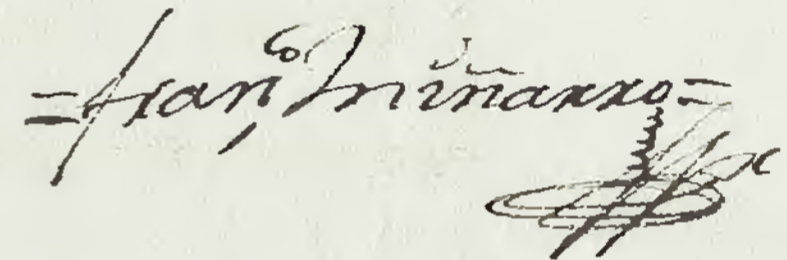 =fran,co Miñarro=